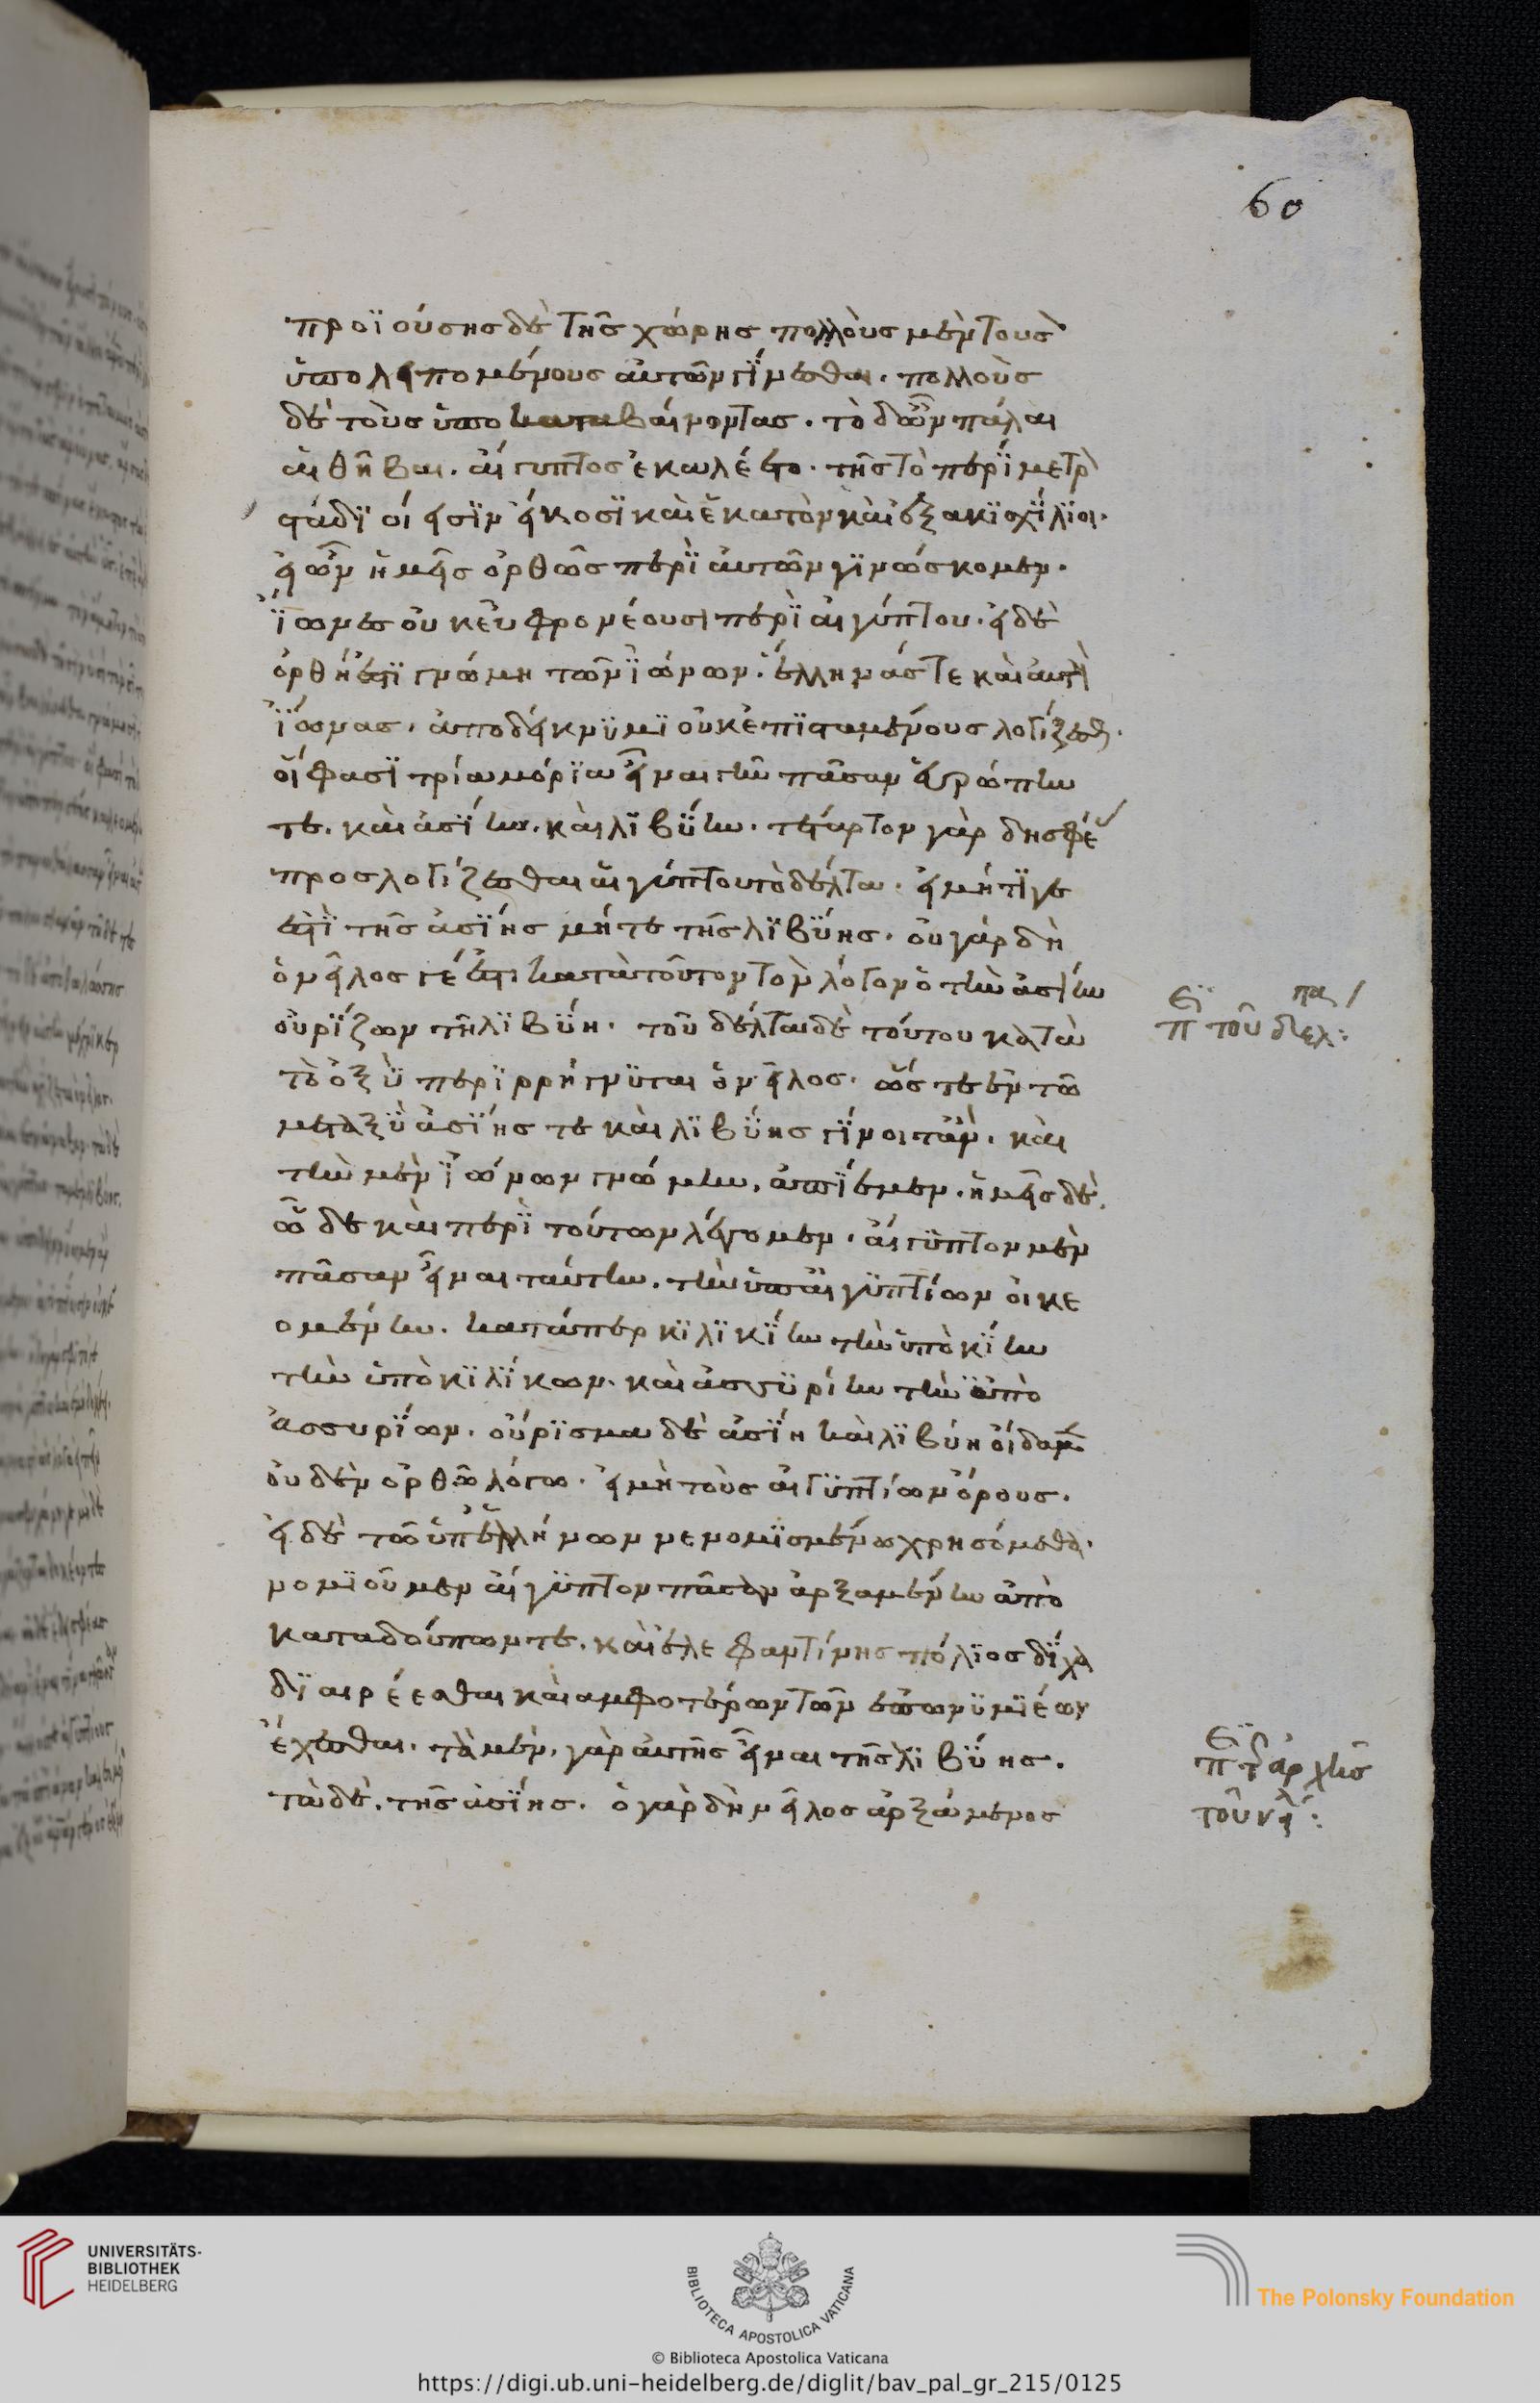 60
προϊούσης δὲ τῆς χώρης πολλοὺς μὲν τοὺς
ὑπολειπομένους αὐτῶν γίνεσθαι. πολλοὺς
δὲ τοὺς ὑποκαταβαίνοντας. τὸ δῶν πάλαι
αἱ θῆβαι. αἴγυπτος ἐκαλέετο. τῆς τὸ περίμετρ
στάδϊοί εἰσϊν εἴκοσϊ καὶ ἑκατὸν καὶ ἑξακϊσχίλϊοι.
εἰ ὦν ἡμεῖς ὀρθῶς περὶ αὐτῶν γϊνώσκομεν.
ἴωνες οὐκ εὖ φρονέουσι περὶ αἰγύπτου. εἰ δὲ
ὀρθή ἐστϊ γνώμη τῶν ϊώνων. ἕλληνάς τε καὶ αὐτὶ
ἴωνας. ἀποδείκνϋμϊ οὐκ ἐπϊσταμένους λογίζεσθ.
οἵ φασϊ τρία μόρϊα εἶναι τὴν πᾶσαν εὐρώπην
τε. καὶ ἀσΐην. καὶ λϊβΰην. τέταρτον γὰρ δὴ σφέ
προσλογίζεσθαι αἰγύπτου τὸ δέλτα. εἰ μή τΐ γε
ἐστϊ τῆς ἀσΐης μήτε τῆς λϊβΰης. οὐ γὰρ δὴ
ὁ νεῖλος γέ ἐστι κατὰ τοῦτον τὸν λόγον ὁ τὴν ἀσίην
οὐρΐζων τῆ λϊβΰη. τοῦ δέλτα δὲ τούτου κατὰ
τὸ ὀξϋ περϊρρήγνϋται ὁ νεῖλος. ὥστε ἐν τῶ
μεταξϋ ἀσΐης τε καὶ λϊβΰης γΐνοιτ' ἄν. καὶ
τὴν μὲν ϊώνων γνώμην, ἀπΐεμεν. ἡμεῖς δὲ.
ὧδε καὶ περὶ τούτων λέγομεν. αἴγϋπτον μὲν
πᾶσαν εἶναι ταύτην. τὴν ὑπ' αἰγϋπτίων οἰκε
ομένην. κατάπερ κϊλϊκΐην τὴν ὑπὸ κΐην
τὴν ὑπὸ κϊλΐκων. καὶ ἀσσϋρίην τὴν ὑπὸ
ἀσσυρΐων. οὔρϊσμα δὲ ἀσΐη καὶ λϊβύη οἴδαμ
οὐδὲν ὀρθῶ λόγω. εἰ μὴ τοὺς αἰγϋπτίων ὅρους.
εἰ δὲ τῶ ὑπ' ἑλλήνων νενομϊσμένω χρησόμεθα.
νομϊοῦμεν αἴγϋπτον πᾶσαν ἀρξαμένην ἀπὸ
καταδούπων τε. καὶ ἐλεφαντίνης πόλϊος δΐχα
δϊαιρέεσθαι καὶ αμφοτέρων τῶν ἐπωνϋμϊέων
ἔχεσθαι. τὰ μὲν. γὰρ αὐτῆς εἶναι τῆς λϊβΰης.
τὰ δὲ. τῆς ἀσΐης. ὁ γὰρ δὴ νεῖλος ἀρξάμενος
τοῦ δελ:
τοῦ νει:
UNIVERSITÄTS-
BIBLIOTHEK
HEIDELBERG
BIBLIOTECA APOSTOLICA VATICANA
The Polonsky Foundation
© Biblioteca Apostolica Vaticana
https://digi.ub.uni-heidelberg.de/diglit/bav_pal_gr_215/0125